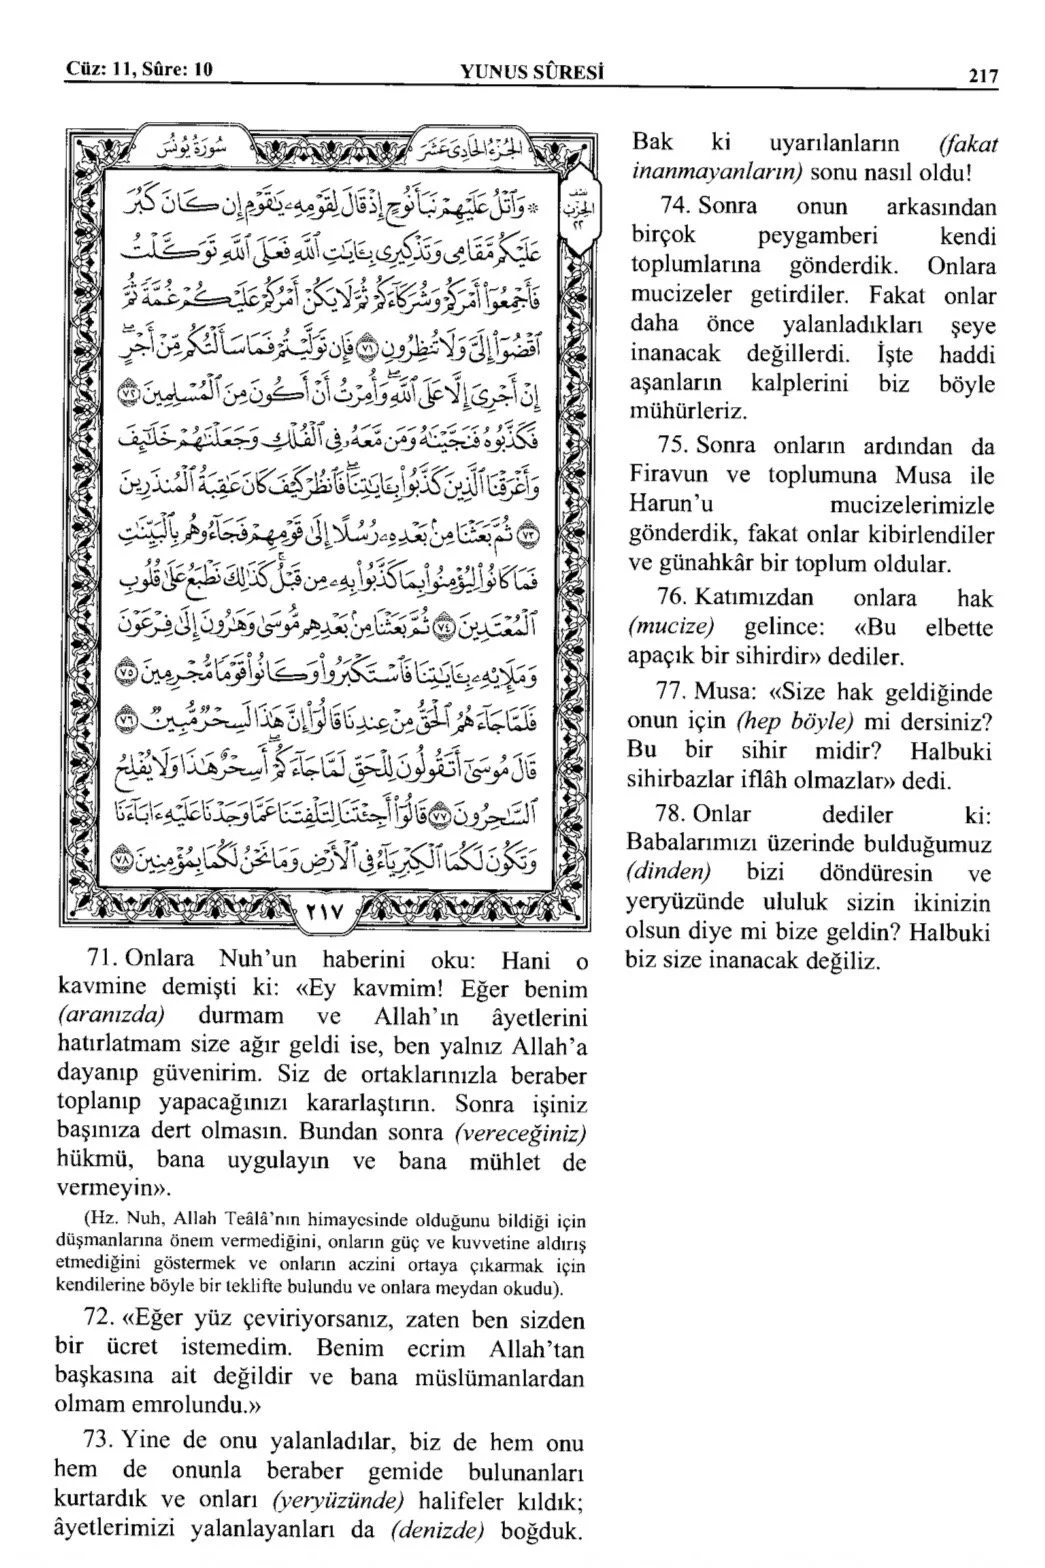 Cüz: 11, Sûre: 10
YUNUS SÛRESİ
217
سُورَةُ يُونُسَ
الجُزْءُ الحَادِي عَشَرَ
نصف
الحزب
٢٢
* وَٱتْلُ عَلَيْهِمْ نَبَأَ نُوحٍ إِذْ قَالَ لِقَوْمِهِۦ يَٰقَوْمِ إِن كَانَ كَبُرَ
عَلَيْكُم مَّقَامِى وَتَذْكِيرِى بِـَٔايَٰتِ ٱللَّهِ فَعَلَى ٱللَّهِ تَوَكَّلْتُ
فَأَجْمِعُوٓا۟ أَمْرَكُمْ وَشُرَكَآءَكُمْ ثُمَّ لَا يَكُنْ أَمْرُكُمْ عَلَيْكُمْ غُمَّةً ثُمَّ
ٱقْضُوٓا۟ إِلَىَّ وَلَا تُنظِرُونِ ٧١ فَإِن تَوَلَّيْتُمْ فَمَا سَأَلْتُكُم مِّنْ أَجْرٍ ۖ
إِنْ أَجْرِىَ إِلَّا عَلَى ٱللَّهِ ۖ وَأُمِرْتُ أَنْ أَكُونَ مِنَ ٱلْمُسْلِمِينَ ٧٢
فَكَذَّبُوهُ فَنَجَّيْنَٰهُ وَمَن مَّعَهُۥ فِى ٱلْفُلْكِ وَجَعَلْنَٰهُمْ خَلَٰٓئِفَ
وَأَغْرَقْنَا ٱلَّذِينَ كَذَّبُوا۟ بِـَٔايَٰتِنَا ۖ فَٱنظُرْ كَيْفَ كَانَ عَٰقِبَةُ ٱلْمُنذَرِينَ
٧٣ ثُمَّ بَعَثْنَا مِنۢ بَعْدِهِۦ رُسُلًا إِلَىٰ قَوْمِهِمْ فَجَآءُوهُم بِٱلْبَيِّنَٰتِ
فَمَا كَانُوا۟ لِيُؤْمِنُوا۟ بِمَا كَذَّبُوا۟ بِهِۦ مِن قَبْلُ ۚ كَذَٰلِكَ نَطْبَعُ عَلَىٰ قُلُوبِ
ٱلْمُعْتَدِينَ ٧٤ ثُمَّ بَعَثْنَا مِنۢ بَعْدِهِم مُّوسَىٰ وَهَٰرُونَ إِلَىٰ فِرْعَوْنَ
وَمَلَإِي۟هِۦ بِـَٔايَٰتِنَا فَٱسْتَكْبَرُوا۟ وَكَانُوا۟ قَوْمًا مُّجْرِمِينَ ٧٥
فَلَمَّا جَآءَهُمُ ٱلْحَقُّ مِنْ عِندِنَا قَالُوٓا۟ إِنَّ هَٰذَا لَسِحْرٌ مُّبِينٌ ٧٦
قَالَ مُوسَىٰٓ أَتَقُولُونَ لِلْحَقِّ لَمَّا جَآءَكُمْ ۖ أَسِحْرٌ هَٰذَا وَلَا يُفْلِحُ
ٱلسَّٰحِرُونَ ٧٧ قَالُوٓا۟ أَجِئْتَنَا لِتَلْفِتَنَا عَمَّا وَجَدْنَا عَلَيْهِ ءَابَآءَنَا
وَتَكُونَ لَكُمَا ٱلْكِبْرِيَآءُ فِى ٱلْأَرْضِ وَمَا نَحْنُ لَكُمَا بِمُؤْمِنِينَ ٧٨
٢١٧
71. Onlara Nuh’un haberini oku: Hani o
kavmine demişti ki: «Ey kavmim! Eğer benim
(aranızda) durmam ve Allah’ın âyetlerini
hatırlatmam size ağır geldi ise, ben yalnız Allah’a
dayanıp güvenirim. Siz de ortaklarınızla beraber
toplanıp yapacağınızı kararlaştırın. Sonra işiniz
başınıza dert olmasın. Bundan sonra (vereceğiniz)
hükmü, bana uygulayın ve bana mühlet de
vermeyin».
(Hz. Nuh, Allah Teâlâ’nın himayesinde olduğunu bildiği için
düşmanlarına önem vermediğini, onların güç ve kuvvetine aldırış
etmediğini göstermek ve onların aczini ortaya çıkarmak için
kendilerine böyle bir teklifte bulundu ve onlara meydan okudu).
72. «Eğer yüz çeviriyorsanız, zaten ben sizden
bir ücret istemedim. Benim ecrim Allah’tan
başkasına ait değildir ve bana müslümanlardan
olmam emrolundu.»
73. Yine de onu yalanladılar, biz de hem onu
hem de onunla beraber gemide bulunanları
kurtardık ve onları (yeryüzünde) halifeler kıldık;
âyetlerimizi yalanlayanları da (denizde) boğduk.
Bak ki uyarılanların (fakat
inanmayanların) sonu nasıl oldu!
74. Sonra onun arkasından
birçok peygamberi kendi
toplumlarına gönderdik. Onlara
mucizeler getirdiler. Fakat onlar
daha önce yalanladıkları şeye
inanacak değillerdi. İşte haddi
aşanların kalplerini biz böyle
mühürleriz.
75. Sonra onların ardından da
Firavun ve toplumuna Musa ile
Harun’u mucizelerimizle
gönderdik, fakat onlar kibirlendiler
ve günahkâr bir toplum oldular.
76. Katımızdan onlara hak
(mucize) gelince: «Bu elbette
apaçık bir sihirdir» dediler.
77. Musa: «Size hak geldiğinde
onun için (hep böyle) mi dersiniz?
Bu bir sihir midir? Halbuki
sihirbazlar iflâh olmazlar» dedi.
78. Onlar dediler ki:
Babalarımızı üzerinde bulduğumuz
(dinden) bizi döndüresin ve
yeryüzünde ululuk sizin ikinizin
olsun diye mi bize geldin? Halbuki
biz size inanacak değiliz.